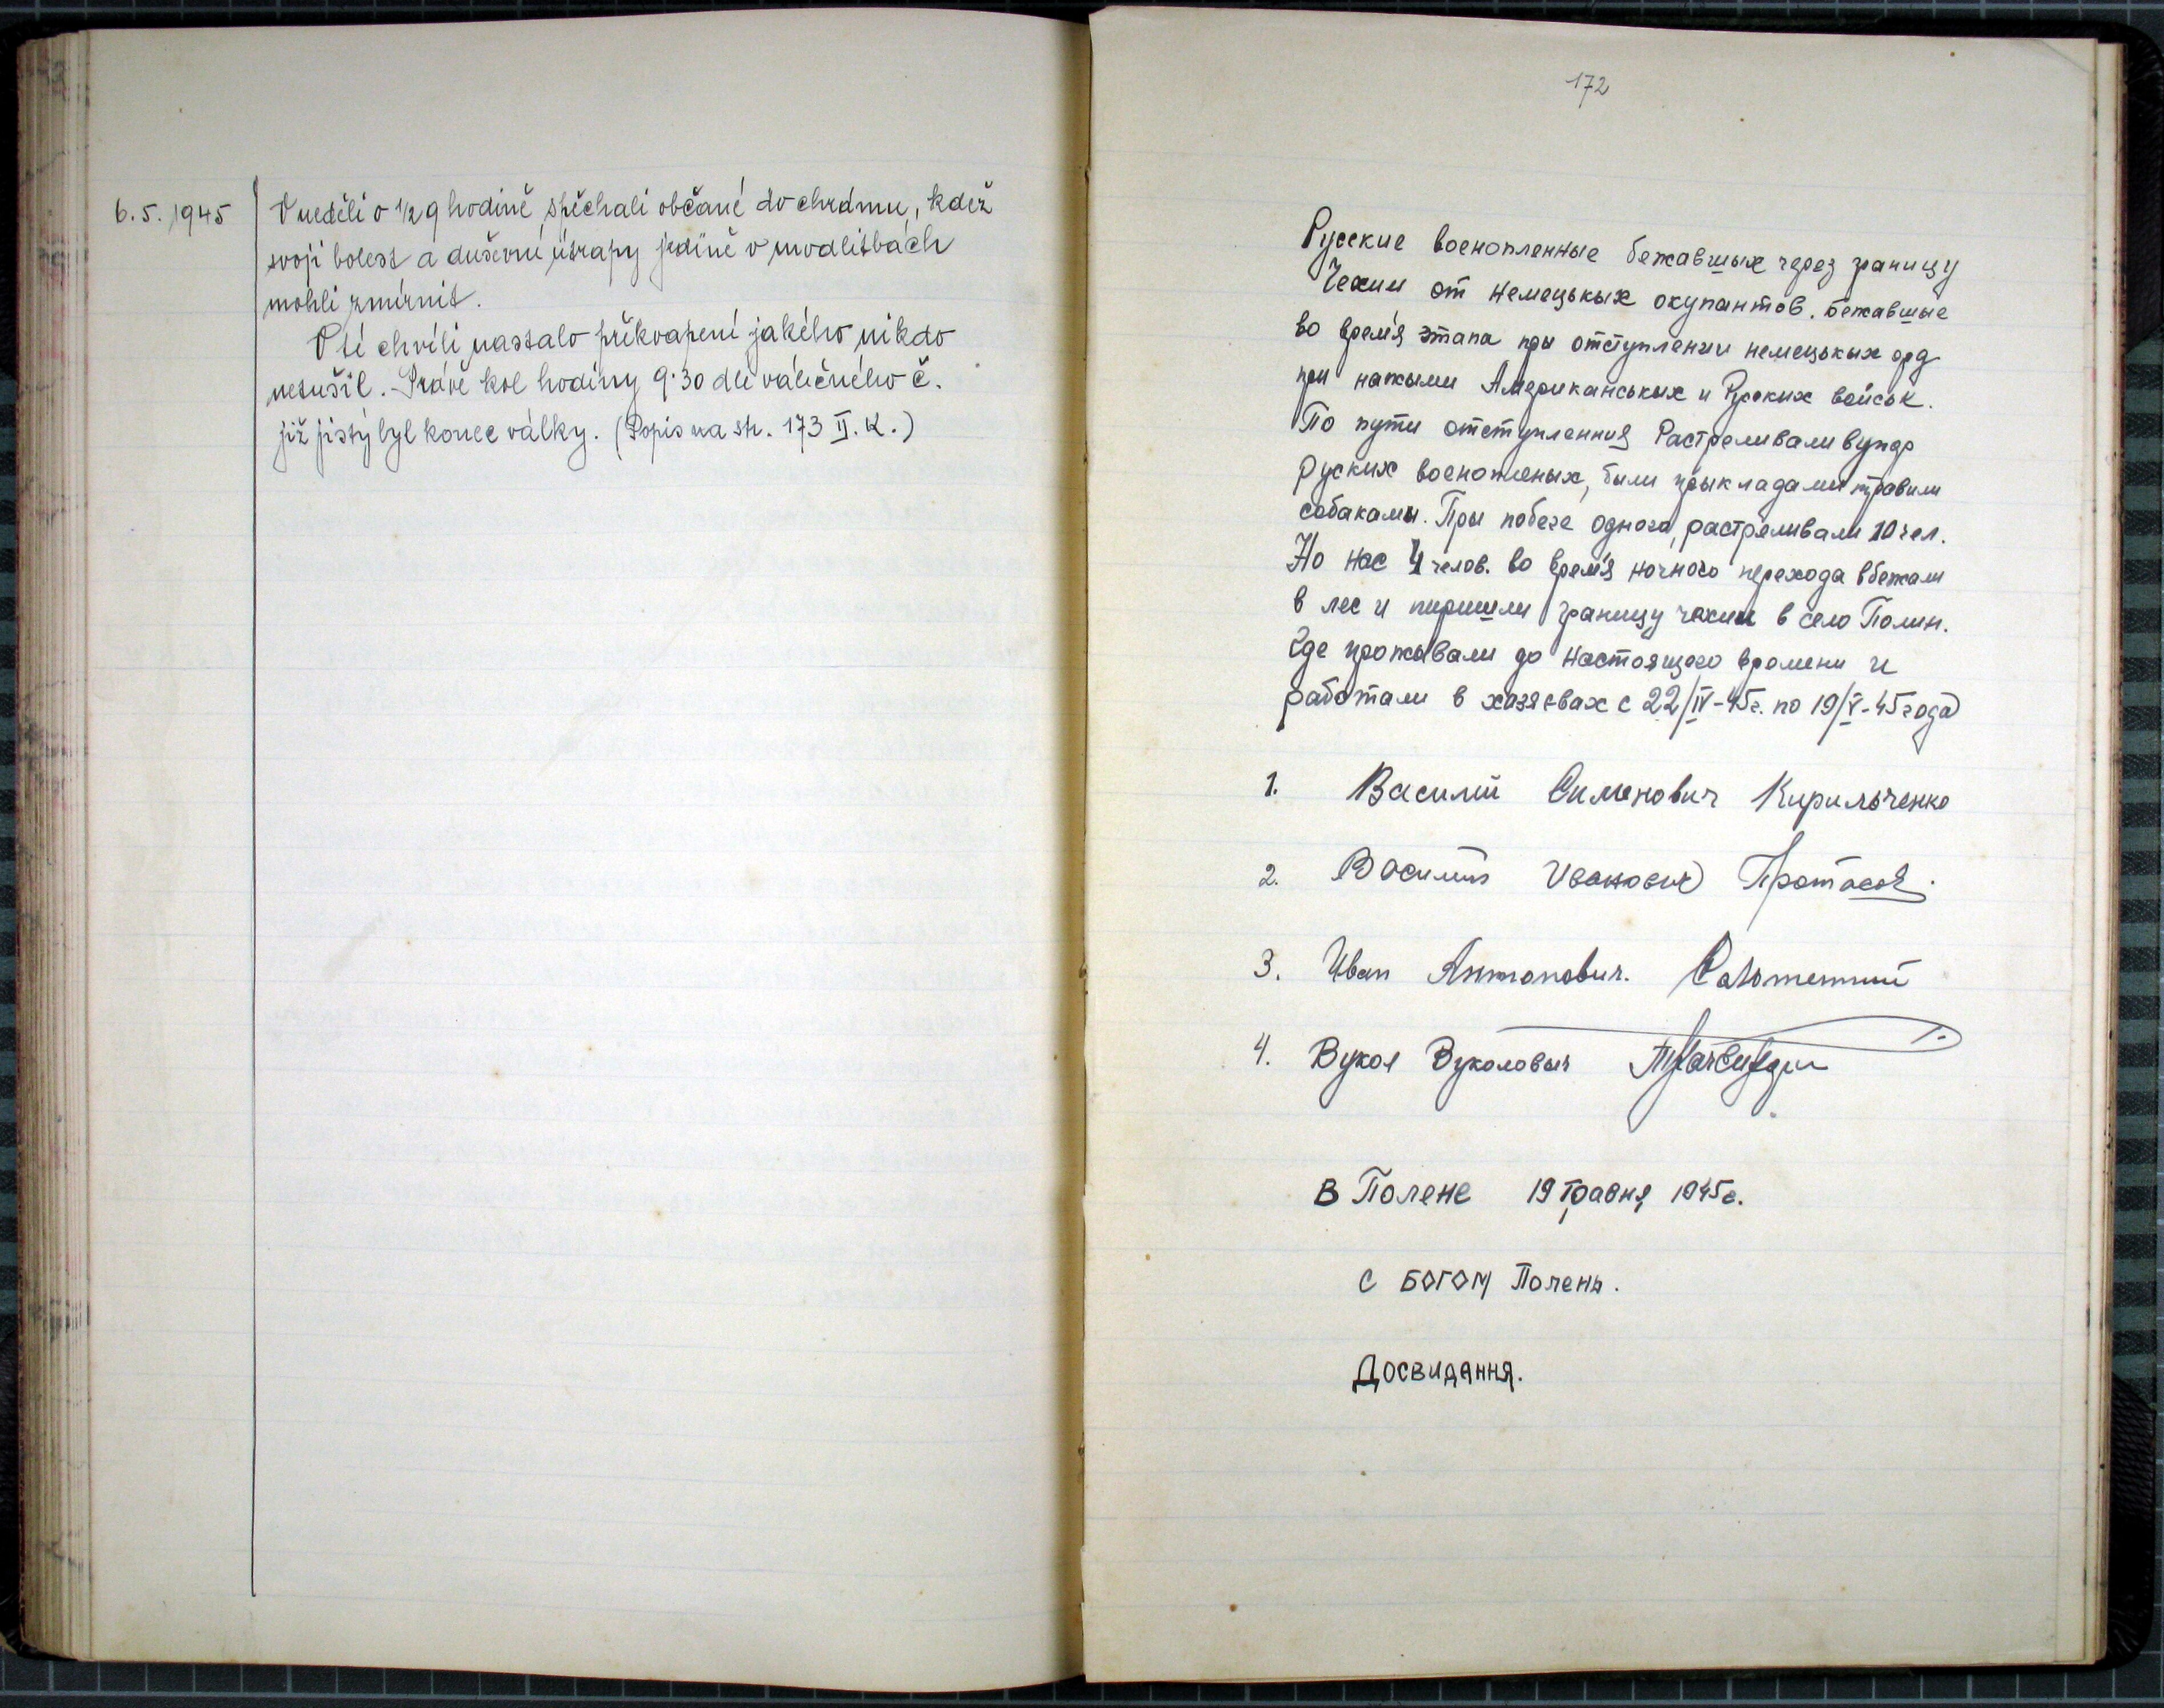 6.5.1945
V neděli o 1/2 9 hodině spěchali občané do chrámu, kdež
svoji bolest a duševní útrapy jedině v modlitbách
mohli zmírnit.
V té chvíli nastalo překvapení jakého nikdo
netušil. Právě kol hodiny 9·30 dle válečného č.
již jistý byl konec války. (Popis na str. 173 II. K.)
172
Русские военопленные бежавшых через границу
Чехии от немецькых окупантов. бежавшые
во время этапа пры отступлении немецькых орд
при нажыми Американськых и Руских войськ.
По пути отступленния Растреливали
руских военопленых, били прыкладами травили
собакамы. Пры побеге одного, растреливали 10 чел.
Но нас 4 челов. во время ночного перехода вбежали
в лес и пиришли границу чехии в село Полин.
где прожывали до настоящего времени и
работали в хазяєвах с 22/IV-45г. по 19/V-45года
1. Василий Сименович Кирильченко
2. Василий Иванович Протасов.
3. Иван Антонович.
4. Вукол Вуколовыч
В Полене 19 травня 1945г.
С БОГОМ Полень.
Досвидання.